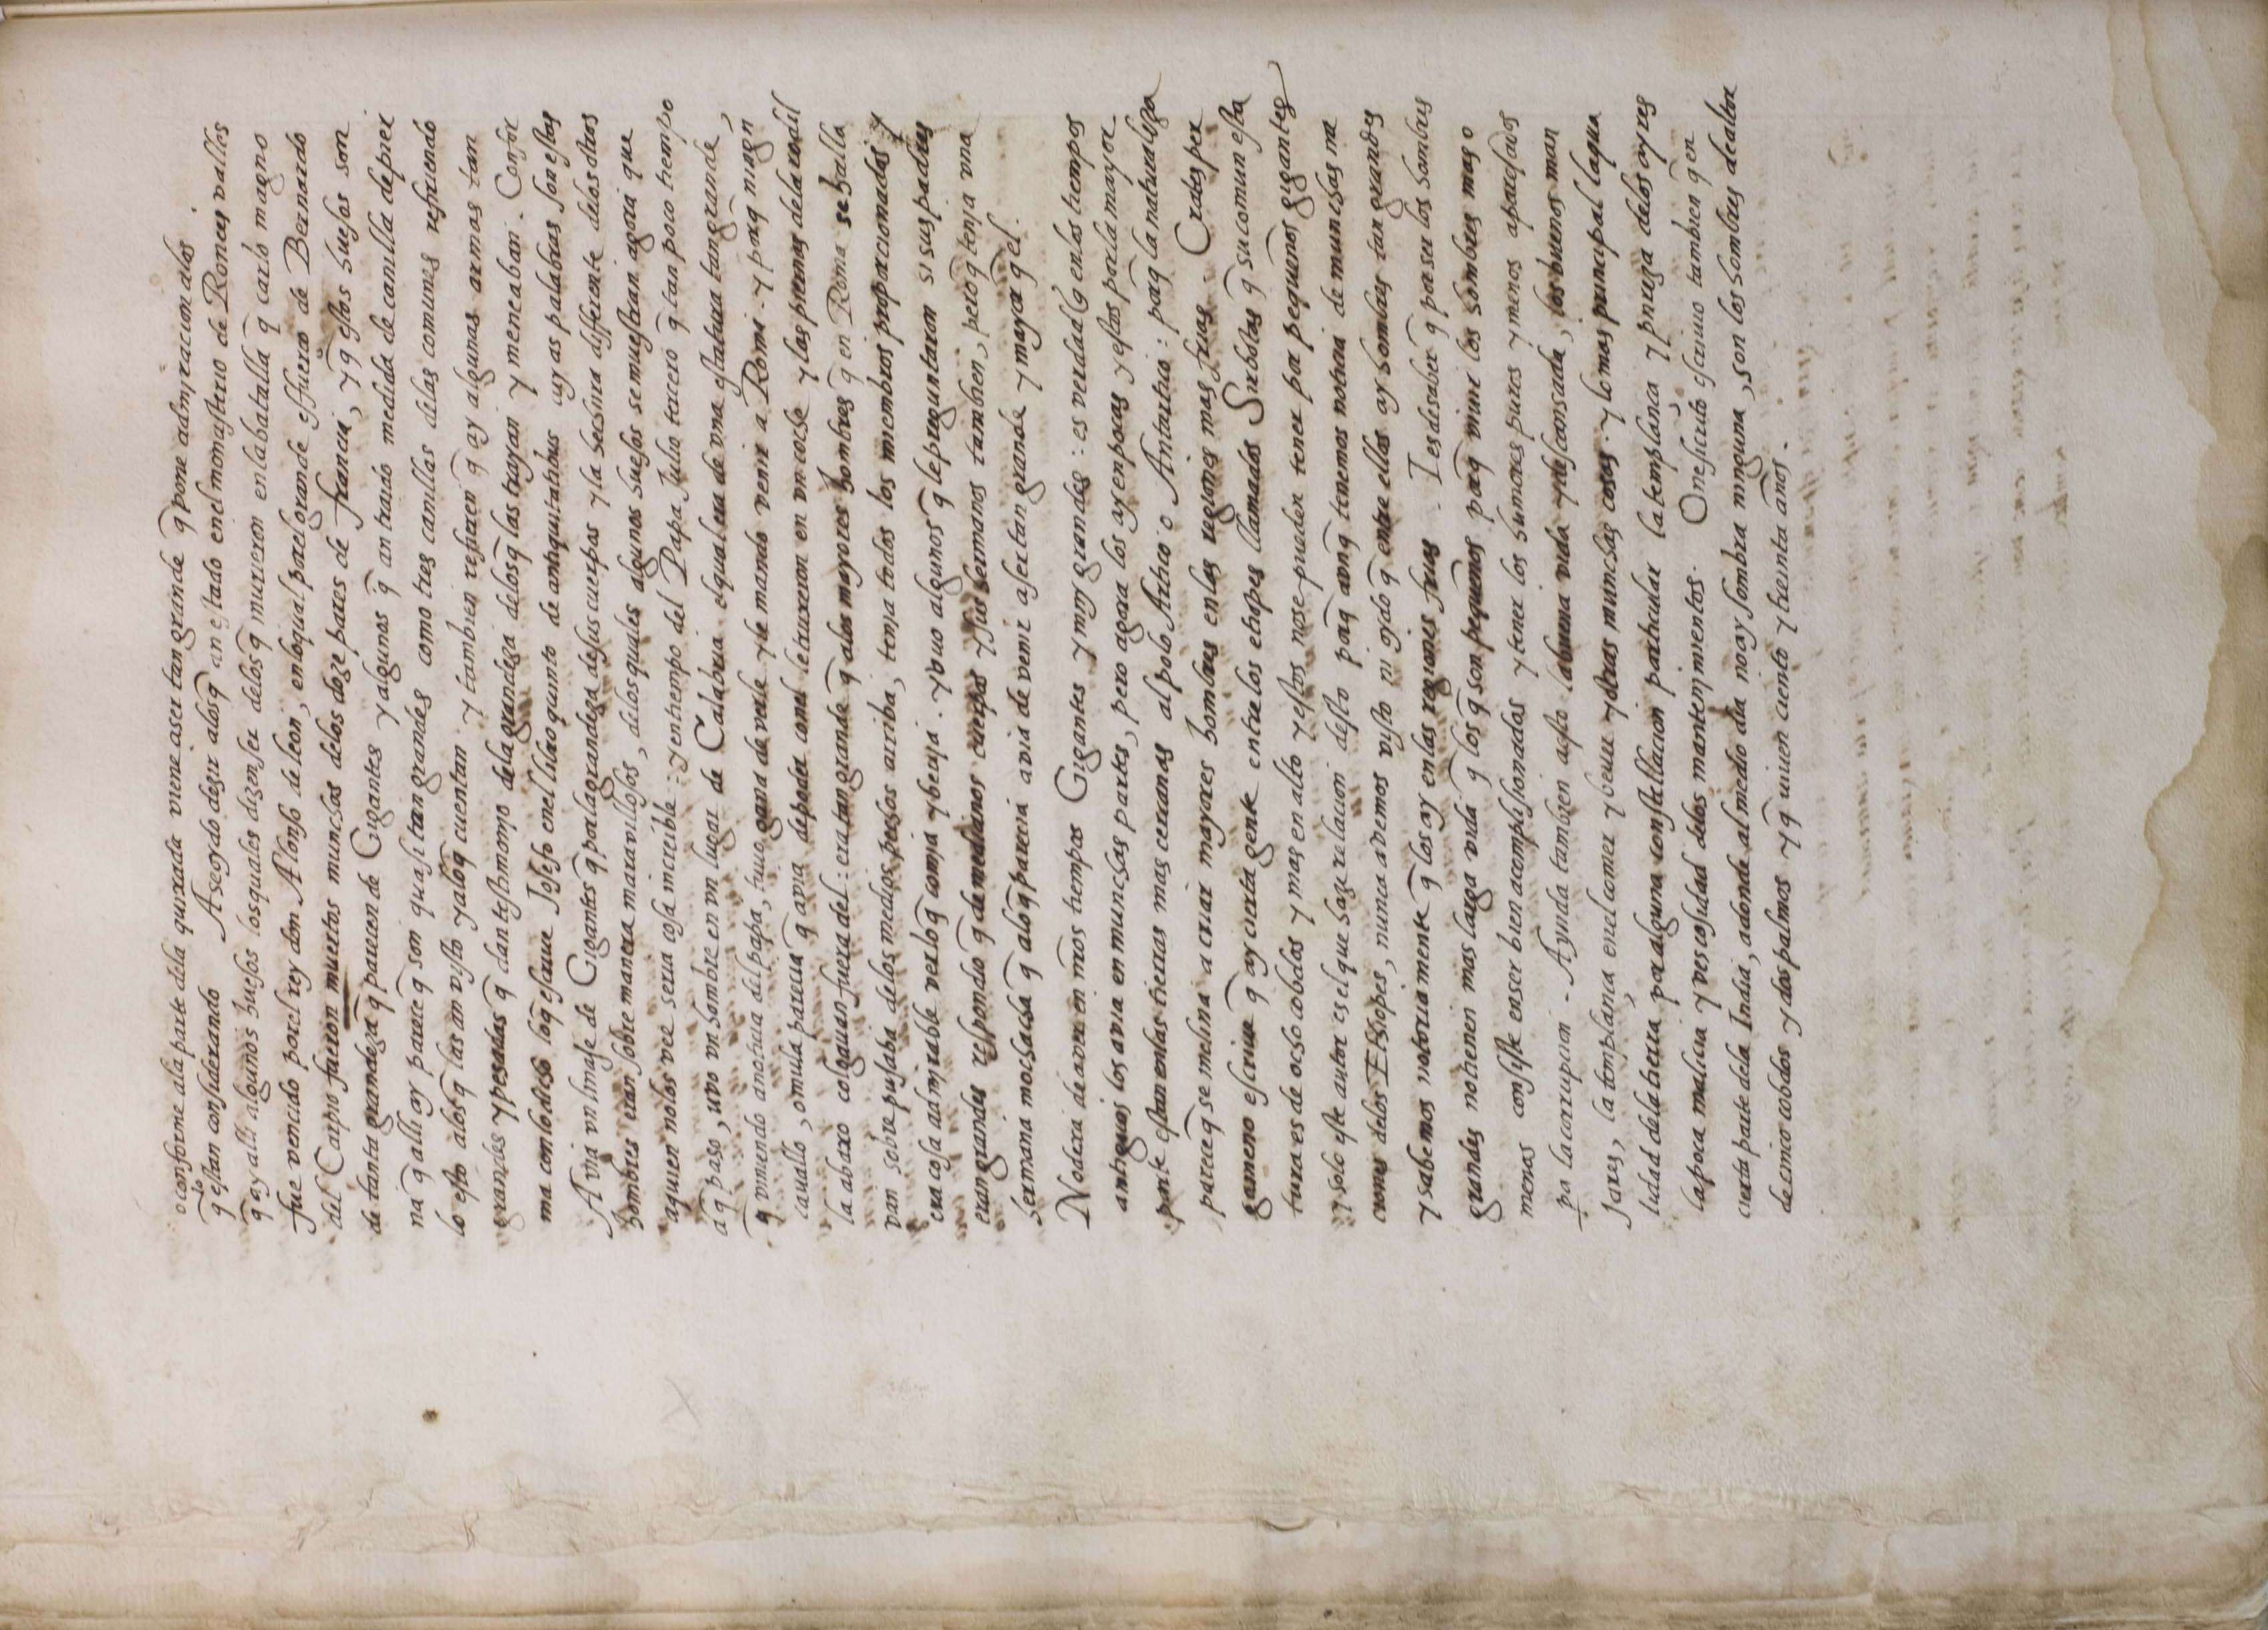 o conforme ala parte dela quixada viene aser tan grande q̃ pone admyracion alos
q̃ lo estan considerando    Aseoydo dezir alos q̃ an estado enel monasterio de Ronces valles
q̃ ay alli algunos huesos los quales dizen ser delos q̃ murieron en la batalla q̃ carlo magno
fue vencido por el rey don Alonso de leon, en lo qual por el grande esfuerço de Bernardo
del Carpio fueron muertos munchos delos doze pares de francia, y q̃ estos huesos son
de tanta grandeza q̃ parecen de Gigantes y algunos q̃ an traido medida de canilla de pier
na q̃ alli ay parece q̃ son quasi tan grandes como tres canillas delas comunes refiriendo
lo esto alos q̃ las an visto y alo q̃ cuentan y tambien refieren q̃ ay algunas armas tan
grandes y pesadas q̃ dan testimonyo dela grandeza delos q̃ las trayan y meneaban. Confor
ma con lo dicho lo q̃ escrive Josefo enel libro quinto de antiquitatibus cuyas palabras son estas
Avia un linaje de Gigantes q̃ por la grandeza de sus cuerpos y la hechura differente delos otros
hombres eran sobre manera maravillosos, delos quales algunos huesos se muestran agora que
a quien no los vee seria cosa increible: y en tiempo del Papa Julio tercero q̃ tan poco tiempo
a q̃ paso, uvo un hombre en un lugar de Calabria el qual era de una estatura tan grande,
q̃ viniendo a noticia del papa, tuvo gana de verle y le mando venir a Roma. y porq̃ ningũ
cavallo, o mula parecia q̃ avia de poder con el le truxeron en un coche y las piernas dela rodil
la abaxo colgavan fuera del: era tan grande q̃ alos mayores hombres q̃ en Roma se halla
van sobre pujaba delos medios pechos arriba, tenia todos los miembros proporcionados y
era cosa admirable ver lo q̃ comia y bebia. y uvo algunos q̃ le preguntaron si sus padres
eran grandes respondio q̃ de medianos cuerpos y sus hermanos tambien, pero q̃ tenja una
hermana mochacha q̃ alo q̃ parecia avia de venir aser tan grande y mayor q̃ el.
No dexa de aver en nr̃os tiempos Gigantes y muy grandes: es verdad q̃ en los tiempos
antiguos los avia en munchas partes, pero agora los ay en pocas y estas por la mayor
parte estan en las tierras mas cercanas al polo Artico o Antartico: porq̃ la naturaleza
parece q̃ se inclina a criar mayores hombres en las regiones mas frias. Crates per
gameno escrive q̃ ay cierta gente entre los etiopes llamados Sirbotas q̃ su comun esta
tura es de ocho cobdos y mas en alto y estos no se pueden tener por pequeños gigantes
y solo este autor es el que haze relacion desto porq̃ aunq̃ tenemos noticia de munchas na
ciones delos Ethiopes, nunca avemos visto ni oydo q̃ entre ellos ay hombres tan grandes
y sabemos notoriamente q̃ los ay en las regiones frias. I es de saber q̃ por ser los hombres
grandes no tienen mas larga vida q̃ los q̃ son pequeños porq̃ vivir los hombres mas o
menos consiste en ser bien acomplisionados y tener los humores puros y menos aparejados
pa la corrupcion. Ayuda tambien aesto la buena vida y descansada, los buenos man
jares, la templança en el comer y bever y otras munchas cosas. y lo mas principal la qua
lidad dela tierra por alguna constellacion particular la templança y pureza delos ayres
la poca malicia y vescosidad delos mantenjmientos. Onesicrito escrivio tambien q̃ en
cierta parte dela India, adonde al medio dia no ay sombra ninguna, son los hombres de altor
de cinco cobdos y dos palmos y q̃ viven ciento y treinta años.